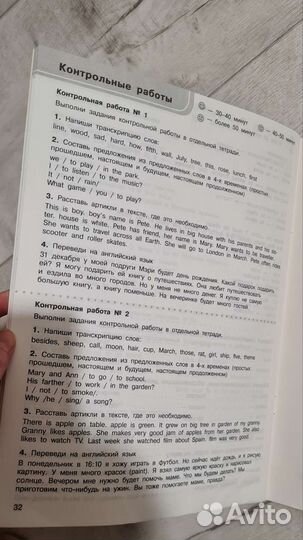 Контрольные работы
— 30-40 минут
— 40-50 минут
— более 50 минут
Контрольная работа № 1
Выполни задания контрольной работы в отдельной тетради.
1. Напиши транскрипцию слов:
line, wood, sad, hard, how, fifth, wall, July, tree, this, rose, lunch, first
2. Составь предложения из предложенных слов в 4-х временах (простых
прошедшем, настоящем и будущем, настоящем продолженном)
we / to play / in the park.
I / to listen / to the music?
It / not / rain/
What game / you / to play?
3. Расставь артикли в тексте, где это необходимо.
This is boy. boy's name is Pete. He lives in big house with his parents and his sis-
ter. house is white. Pete has friend, her name is Mary. Mary wants to be traveler.
She wants to travel across all Earth. She will go to London in March. Pete often rides
scooter and roller skates.
4. Переведи на английский язык
31 декабря у моей подруги Мэри будет день рождения. Какой подарок подарить
ей? Я могу подарить ей книгу о путешествиях. Она любит путешествовать
и ездила во много городов. Но у меня нет денег. Я куплю не самую
большую книгу, а книгу поменьше. На вечеринке будет много гостей
Контрольная работа № 2
Выполни задания контрольной работы в отдельной тетради.
1. Напиши транскрипцию слов:
besides, sheep, call, moon, hair, cup, March, those, rat, girl, ship, five, theme
2. Составь предложения из предложенных слов в 4-х временах (простых
прошедшем, настоящем и будущем, настоящем продолженном)
Mary and Ann / to go / to school.
His farther / to work / in the garden?
I / not / to smoke/.
Why /he / sing/ a song?
3. Расставь артикли в тексте, где это необходимо.
There is apple on table. apple is green. It grew on big tree in garden of my granny.
Granny likes apples. She makes very good jam of apples from her garden. She also
likes to watch TV. Last week she watched film about Spain. film was very good.
4. Переведи на английский язык
В понедельник в 16:10 я хожу играть в футбол. Но сейчас идёт дождь, и я рисую
картину. У меня много красок (paint). Я взял самую яркую краску и нарисовал
солнце. Вечером мне нужно будет помочь маме. Что мы будем делать? Мы
приготовим что-нибудь на ужин. Вы тоже помогаете маме, правда?
32
Avito